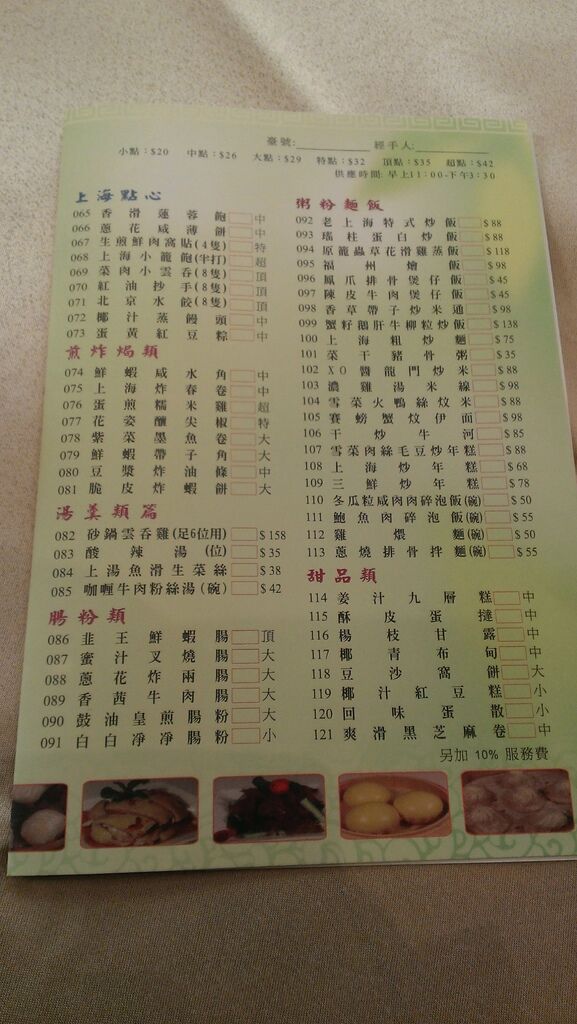 臺號:________ 經手人:________
小點：$20 中點：$26 大點：$29 特點：$32 頂點：$35 超點：$42
供應時間: 早上11：00-下午3：30
上海點心
065 香滑蓮蓉飽 中
066 蔥花咸薄餅 中
067 生煎鮮肉窩貼(4隻) 特
068 上海小籠飽(半打) 超
069 菜肉小雲吞(8隻) 頂
070 紅油抄手(8隻) 頂
071 北京水餃(8隻) 頂
072 椰汁蒸饅頭 中
073 蛋黃紅豆粽 中
煎炸焗類
074 鮮蝦咸水角 中
075 上海炸春卷 中
076 蛋煎糯米雞 超
077 花姿釀尖椒 特
078 紫菜墨魚卷 大
079 鮮蝦帶子角 大
080 豆漿炸油條 中
081 脆皮炸蝦餅 大
湯羹類篇
082 砂鍋雲吞雞(足6位用) $158
083 酸辣湯(位) $35
084 上湯魚滑生菜絲 $38
085 咖喱牛肉粉絲湯(碗) $42
腸粉類
086 韭王鮮蝦腸 頂
087 蜜汁叉燒腸 大
088 蔥花炸兩腸 大
089 香茜牛肉腸 大
090 鼓油皇煎腸粉 大
091 白白凈凈腸粉 小
粥粉麵飯
092 老上海特式炒飯 $88
093 瑤柱蛋白炒飯 $88
094 原籠蟲草花滑雞蒸飯 $118
095 福州燴飯 $98
096 鳳爪排骨煲仔飯 $45
097 陳皮牛肉煲仔飯 $45
098 香草帶子炒米通 $98
099 蟹籽鵝肝牛柳粒炒飯 $138
100 上海粗炒麵 $75
101 菜干豬骨粥 $35
102 XO醬龍門炒米 $88
103 濃雞湯米線 $98
104 雪菜火鴨絲炆米 $88
105 賽螃蟹炆伊面 $98
106 干炒牛河 $85
107 雪菜肉絲毛豆炒年糕 $88
108 上海炒年糕 $68
109 三鮮炒年糕 $78
110 冬瓜粒咸肉肉碎泡飯(碗) $50
111 鮑魚肉碎泡飯(碗) $55
112 雞煨麵(碗) $50
113 蔥燒排骨拌麵(碗) $55
甜品類
114 姜汁九層糕 中
115 酥皮蛋撻 中
116 楊枝甘露 中
117 椰青布甸 中
118 豆沙窩餅 大
119 椰汁紅豆糕 小
120 回味蛋散 小
121 爽滑黑芝麻卷 中
另加 10% 服務費